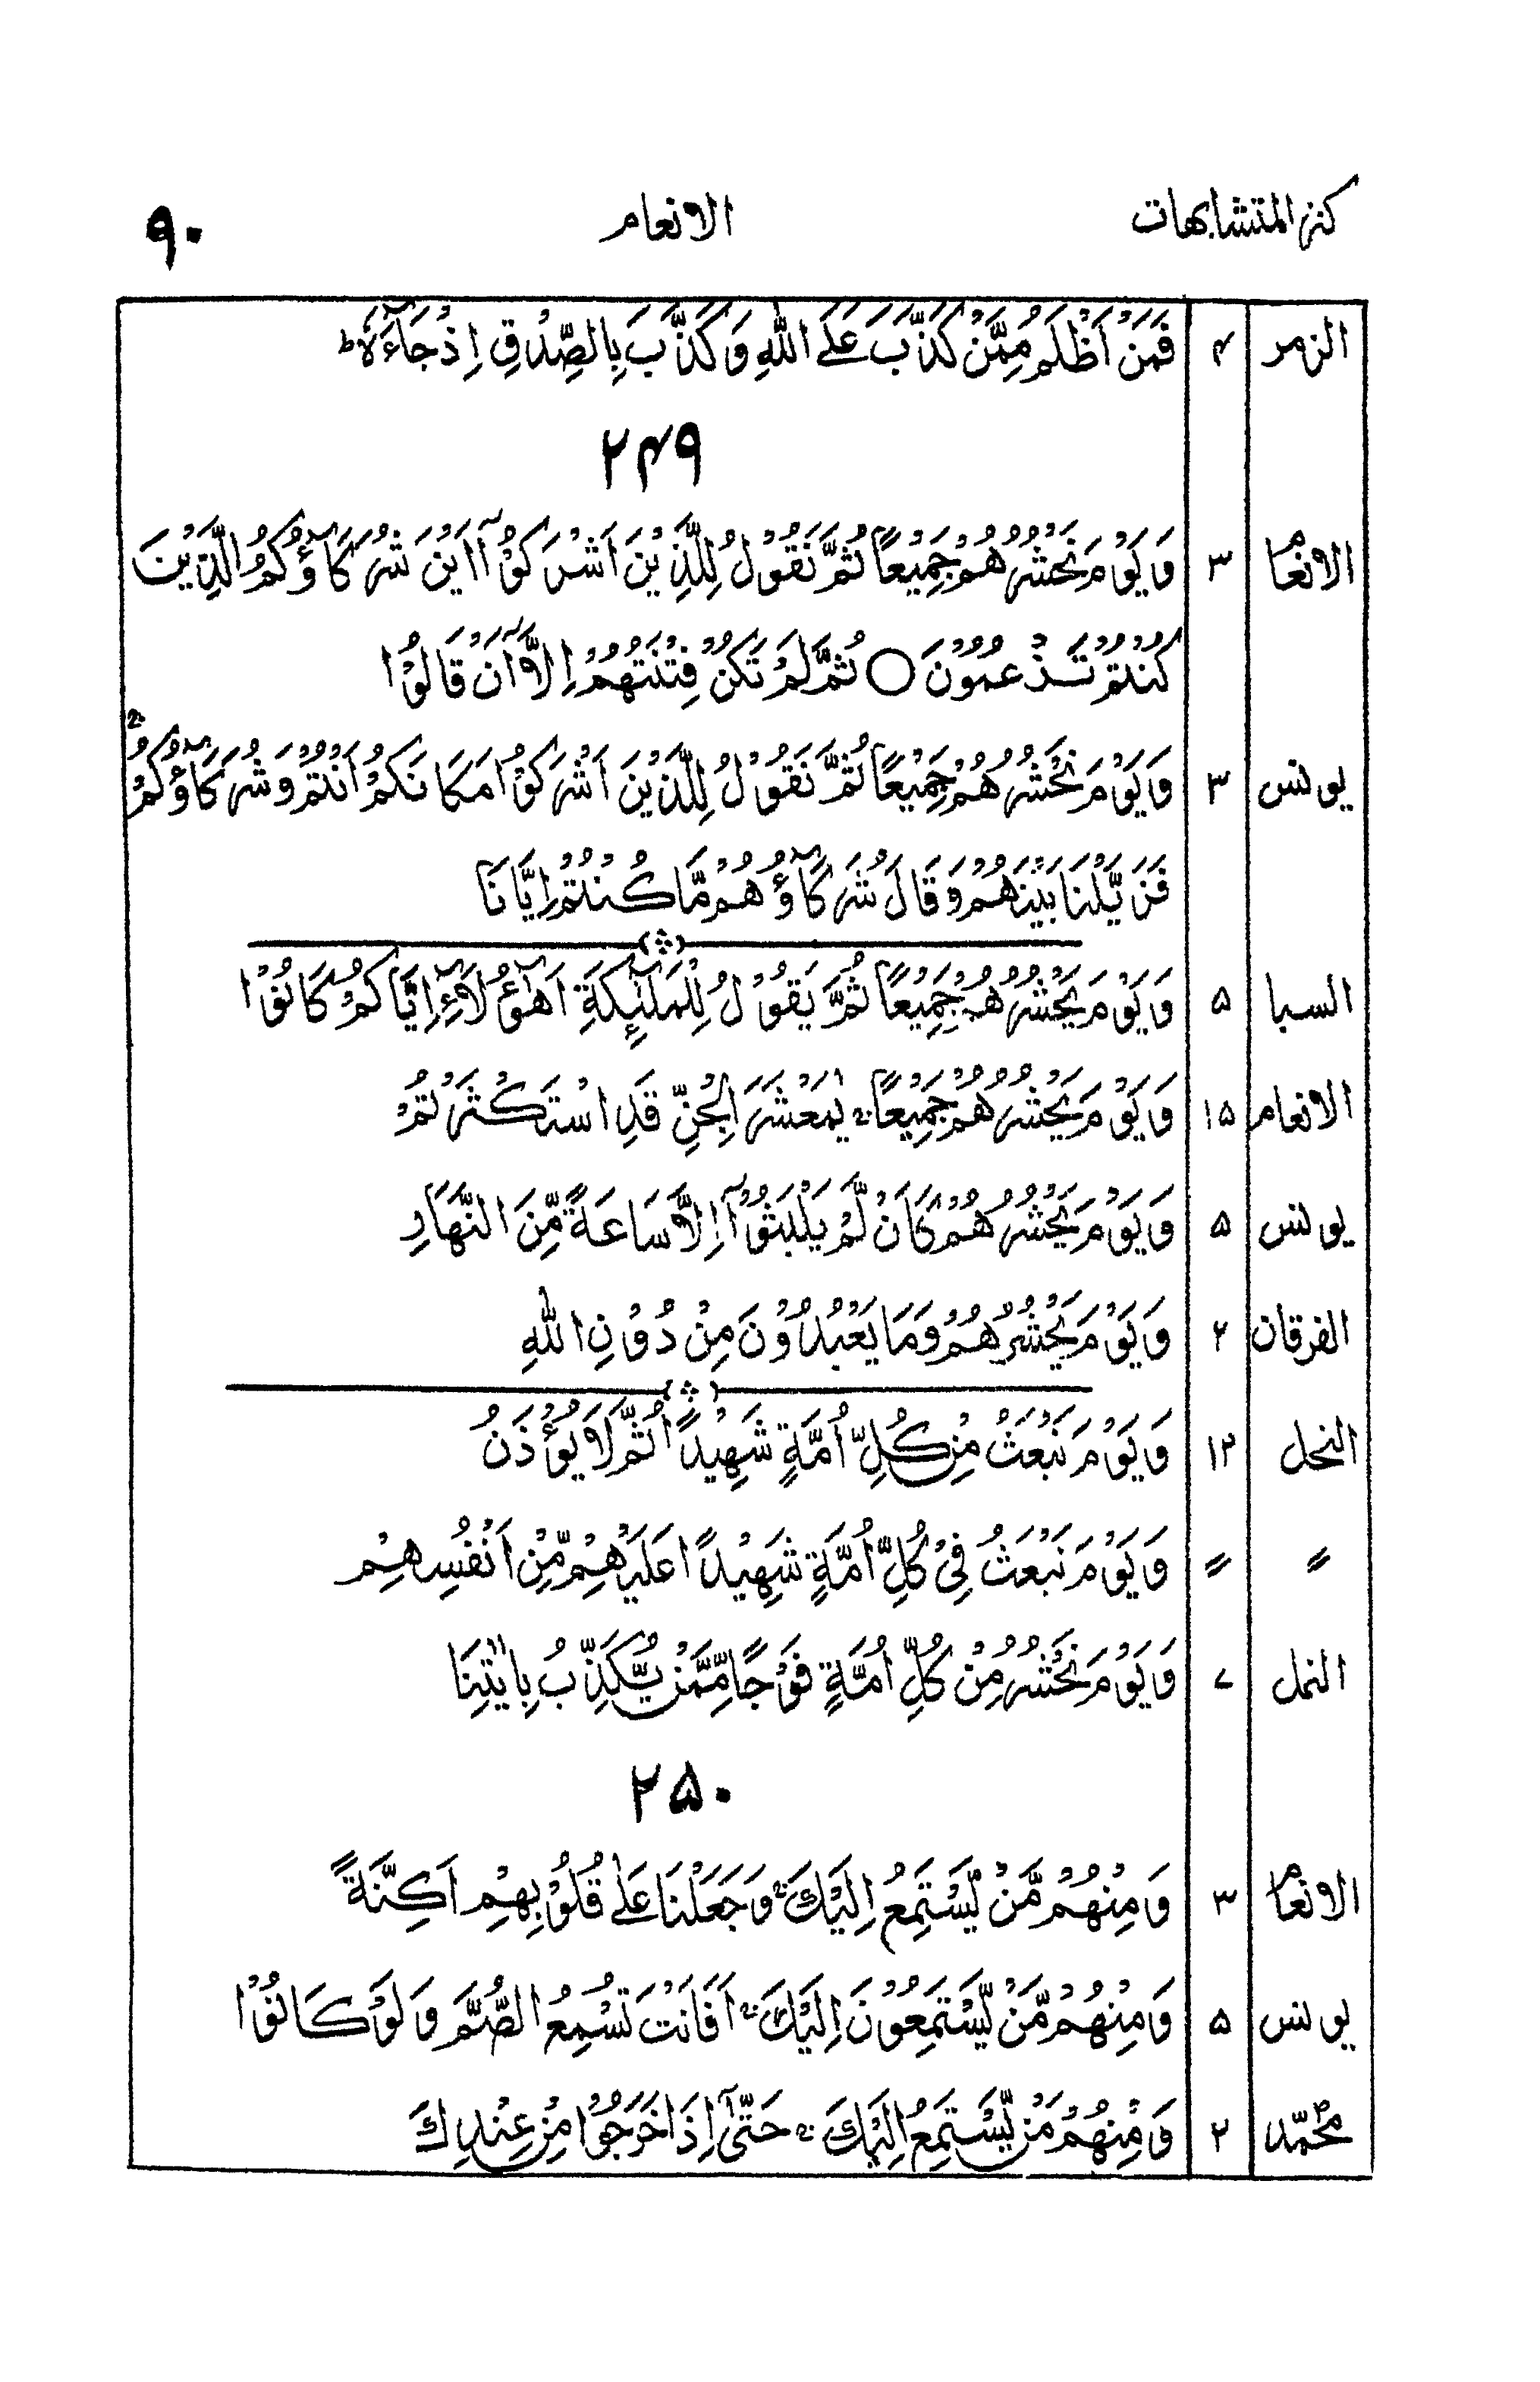 كنز المتشابهات الانعام ۹۰
الزمر ۴ فَمَنْ اَظْلَمُ مِمَّنْ كَذَبَ عَلَى اللّٰهِ وَكَذَّبَ بِالصِّدْقِ اِذْ جَآءَهٗ ؕ
۲۴۹
الانعام ۳ وَيَوْمَ نَحْشُرُهُمْ جَمِيْعًا ثُمَّ نَقُوْلُ لِلَّذِيْنَ اَشْرَكُوْۤا اَيْنَ شُرَكَآؤُكُمُ الَّذِيْنَ
كُنْتُمْ تَزْعُمُوْنَ ○ ثُمَّ لَمْ تَكُنْ فِتْنَتُهُمْ اِلَّاۤ اَنْ قَالُوْا
يونس ۳ وَيَوْمَ نَحْشُرُهُمْ جَمِيْعًا ثُمَّ نَقُوْلُ لِلَّذِيْنَ اَشْرَكُوْا مَكَانَكُمْ اَنْتُمْ وَشُرَكَآؤُكُمْ ۚ
فَزَيَّلْنَا بَيْنَهُمْ وَقَالَ شُرَكَآؤُهُمْ مَّا كُنْتُمْ اِيَّانَا
السبا ۵ وَيَوْمَ يَحْشُرُهُمْ جَمِيْعًا ثُمَّ يَقُوْلُ لِلْمَلٰٓئِكَةِ اَهٰٓؤُلَآءِ اِيَّاكُمْ كَانُوْا
الانعام ۱۵ وَيَوْمَ يَحْشُرُهُمْ جَمِيْعًا ۚ يٰمَعْشَرَ الْجِنِّ قَدِ اسْتَكْثَرْتُمْ
يونس ۵ وَيَوْمَ يَحْشُرُهُمْ كَاَنْ لَّمْ يَلْبَثُوْۤا اِلَّا سَاعَةً مِّنَ النَّهَارِ
الفرقان ۲ وَيَوْمَ يَحْشُرُهُمْ وَمَا يَعْبُدُوْنَ مِنْ دُوْنِ اللّٰهِ
النحل ۱۲ وَيَوْمَ نَبْعَثُ مِنْ كُلِّ اُمَّةٍ شَهِيْدًا ثُمَّ لَا يُؤْذَنُ
〃 〃 وَيَوْمَ نَبْعَثُ فِيْ كُلِّ اُمَّةٍ شَهِيْدًا عَلَيْهِمْ مِّنْ اَنْفُسِهِمْ
النمل ۷ وَيَوْمَ نَحْشُرُ مِنْ كُلِّ اُمَّةٍ فَوْجًا مِّمَّنْ يُّكَذِّبُ بِاٰيٰتِنَا
۲۵۰
الانعام ۳ وَمِنْهُمْ مَّنْ يَّسْتَمِعُ اِلَيْكَ ۚ وَجَعَلْنَا عَلٰى قُلُوْبِهِمْ اَكِنَّةً
يونس ۵ وَمِنْهُمْ مَّنْ يَّسْتَمِعُوْنَ اِلَيْكَ ۚ اَفَاَنْتَ تُسْمِعُ الصُّمَّ وَلَوْ كَانُوْا
محمّد ۲ وَمِنْهُمْ مَّنْ يَّسْتَمِعُ اِلَيْكَ ۚ حَتّٰۤى اِذَا خَرَجُوْا مِنْ عِنْدِكَ